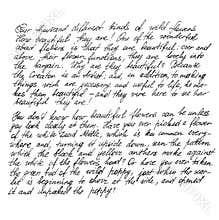 Four thousand different kinds of wild flowers
How beautiful they are! One of the wonderful
about flowers is that they are beautiful over and
above, their serious functions, they are lovely into
the bargain. Why are they beautiful? Because
the Creator is an artist, and, in addition to making
things which are necessary and useful to life, he
has them beautiful; and they were here to see how
beautiful they are!
You don't know how beautiful flowers can be unless
you look closely at them. Have you ever picked a flower
of the white dead Nettle, which is so common every-
where and, turning it upside down, seen the pattern
which the black and yellow anthers make against
the white of the flower's hood? Or have you ever taken
the green bud of the wild poppy, just when the scar-
let is beginning to show at the side, and opened
it and unpacked the poppy!